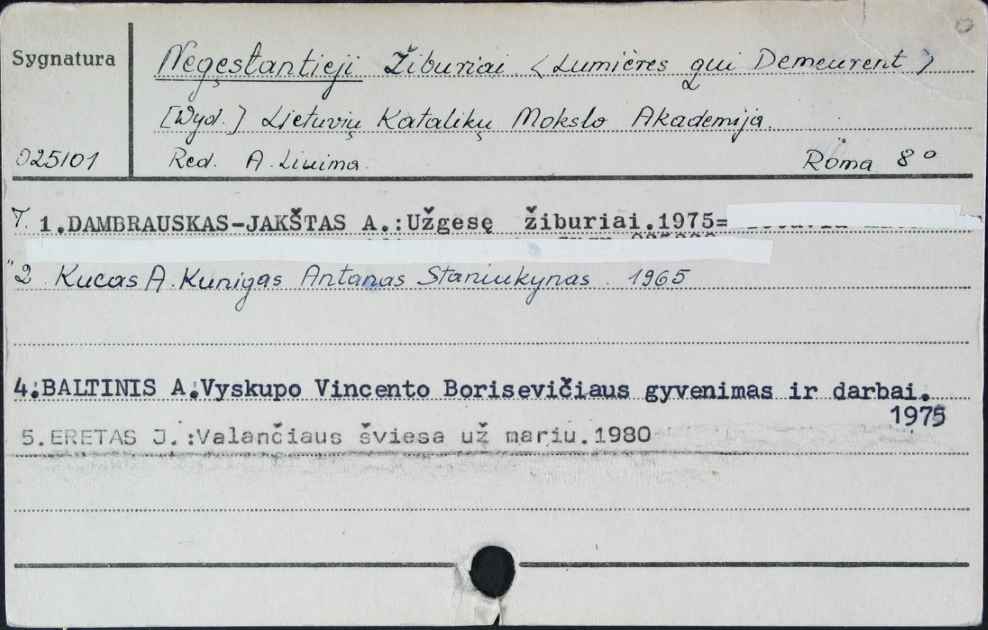 Sygnatura
Negęstantieji Žiburiai <Lumières qui Demeurent>
[Wyd.] Lietuvių Katalikų Mokslo Akademija.
025101 Red. A. Liuima. Roma 8°
T. 1.DAMBRAUSKAS-JAKŠTAS A.:Užgesę žiburiai.1975=
"2 Kucas A. Kunigas Antanas Staniukynas. 1965
4.BALTINIS A.Vyskupo Vincento Borisevičiaus gyvenimas ir darbai.
1975
5.ERETAS J.:Valančiaus šviesa už mariu.1980